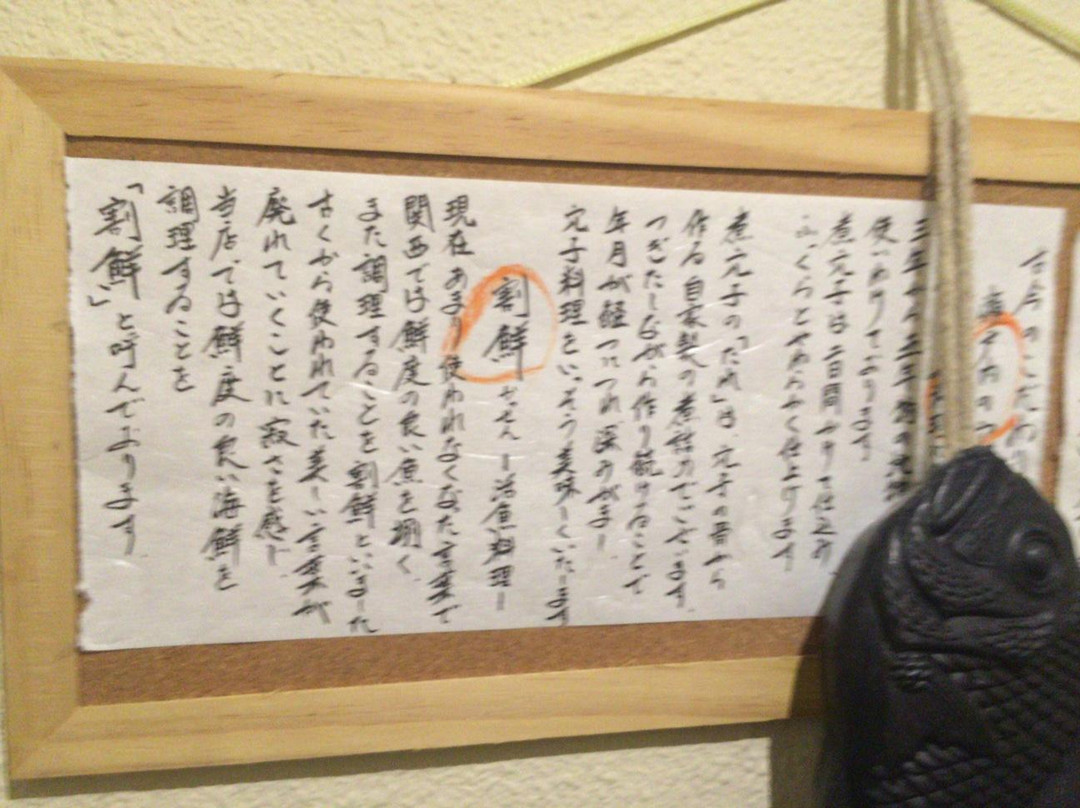 古今のこだわり
穴子の
三年から五年物の
使いわけております
煮穴子は二日間かけて仕込み
ふっくらとやわらかく仕上げます
煮穴子の「たれ」は、穴子の骨から
作る自家製の煮詰めでございます。
つぎたしながら作り続けることで
年月が経つにつれ深みがまし
穴子料理をいっそう美味しくいたします
割鮮 かっせん ー活魚料理ー
現在あまり使われなくなった言葉で
関西では鮮度の良い魚を捌く、
また調理することを割鮮といいました
古くから使われていた美しい言葉が
廃れていくことに寂さを感じ、
当店では鮮度の良い海鮮を
調理することを
「割鮮」と呼んでおります。